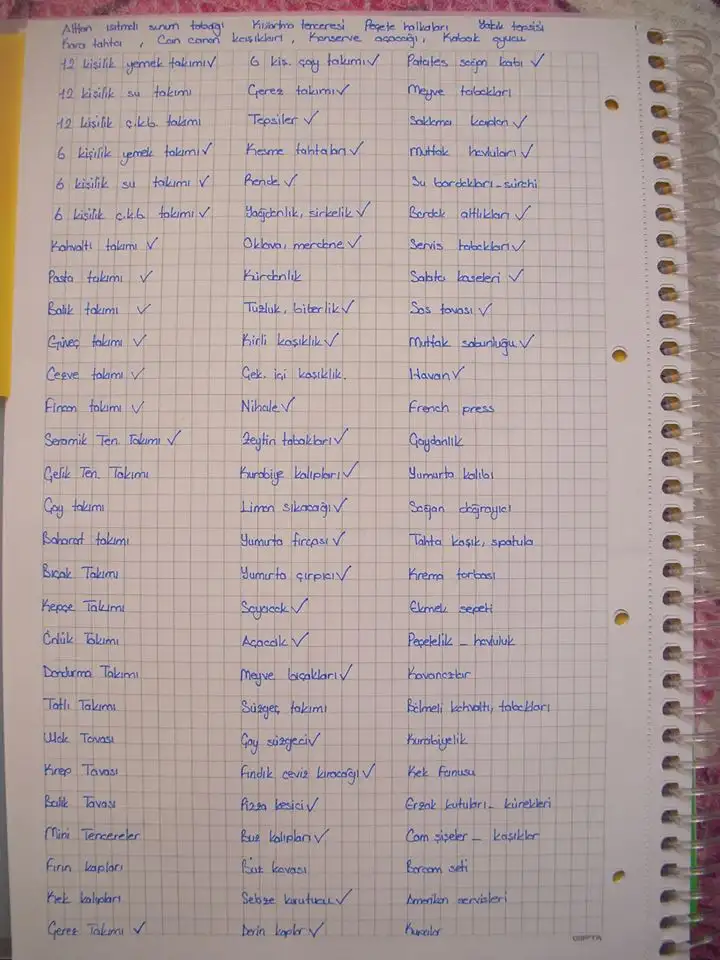 Alttan ısıtmalı sunum tabağı Kızartma tenceresi Peçete halkaları Yanık tepsisi
Kara tahta, Can canan kaşıkları, Konserve açacağı, Kabak oyucu
12 kişilik yemek takımı ✓ 6 kiş. çay takımı ✓ Patates soğan kabı ✓
12 kişilik su takımı Gerez takımı ✓ Meyve tabakları
12 kişilik ç.k.b. takımı Tepsiler ✓ Saklama kapları ✓
6 kişilik yemek takımı ✓ Kesme tahtaları ✓ Mutfak havluları ✓
6 kişilik su takımı ✓ Rende ✓ Su bardakları - sürahi
6 kişilik ç.k.b takımı ✓ Yağdanlık, sirkelik ✓ Bardak altlıkları ✓
Kahvaltı takımı ✓ Oklava, merdane ✓ Servis tabakları ✓
Pasta takımı ✓ Kürdanlık Salata kaseleri ✓
Balık takımı ✓ Tuzluk, biberlik ✓ Sos tavası ✓
Güveç takımı ✓ Kirli kaşıklık ✓ Mutfak sabunluğu ✓
Cezve takımı ✓ Çek. içi kaşıklık. Havan ✓
Fincan takımı ✓ Nihale ✓ French press
Seramik Ten. Takımı ✓ Zeytin tabakları ✓ Çaydanlık
Çelik Ten. Takımı Kurabiye kalıpları ✓ Yumurta kalıbı
Çay takımı Limon sıkacağı ✓ Soğan doğrayıcı
Baharat takımı Yumurta fırçası ✓ Tahta kaşık, spatula
Bıçak Takımı Yumurta çırpıcı ✓ Krema torbası
Kepçe Takımı Soyacak ✓ Ekmek sepeti
Önlük Takımı Açacak ✓ Peçetelik - havluluk
Dondurma Takımı Meyve bıçakları ✓ Kavanozlar
Tatlı Takımı Süzgeç takımı Bölmeli kahvaltı, tabakları
Wok Tavası Çay süzgeci ✓ Kurabiyelik
Krep Tavası Fındık ceviz kıracağı ✓ Kek fanusu
Balık Tavası Pizza kesici ✓ Erzak kutuları - kürekleri
Mini Tencereler Buz kalıpları ✓ Cam şişeler - kaşıklar
Fırın kapları Buz kovası Borcam seti
Kek kalıpları Sebze kurutucu ✓ Amerikan servisleri
Gerez Takımı ✓ Derin kaplar ✓ Kupalar